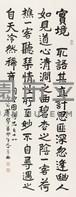 實境 取語甚直計思匪深忽逢幽人
如見道心清澗之曲碧松之陰一客荷
樵一客聽琴情性所至妙不自尋遇之
自天泠然希音